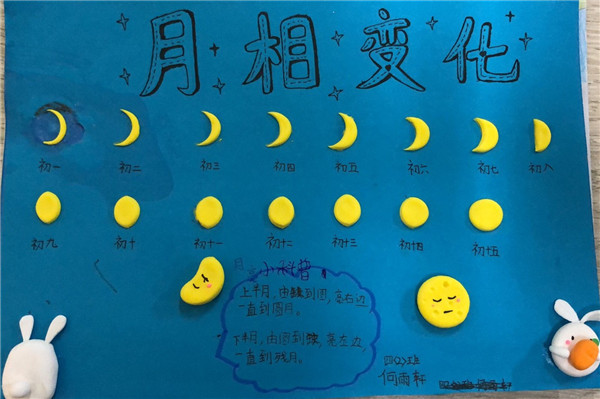 月相变化
初一 初二 初三 初四 初五 初六 初七 初八
初九 初十 初十一 初十二 初十三 初十四 初十五
小科普
上半月,由缺到圆,亮右边
一直到圆月。
下半月,由圆到缺,亮左边,
一直到残月。
四(2)班
何雨轩